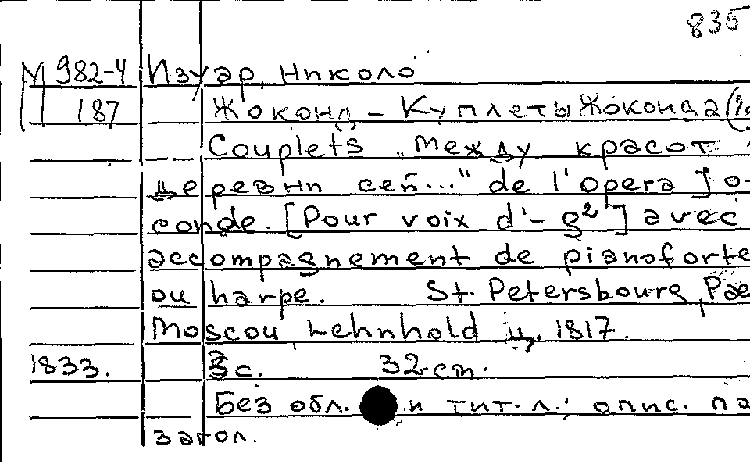 835
М 982-4 Изуар, Николо
187 Жоконд - Куплеты Жоконда
Couplets „Между красот
деревни сей..." de l'opera Jo-
conde. [Pour voix d'-g²] avec
accompagnement de pianoforte
ou harpe. St. Petersbourg, Pae
Moscou Lehnhold ц. 1817
1833. 3с. 32 cm.
Без обл. и тит. л.; опис. по
загол.